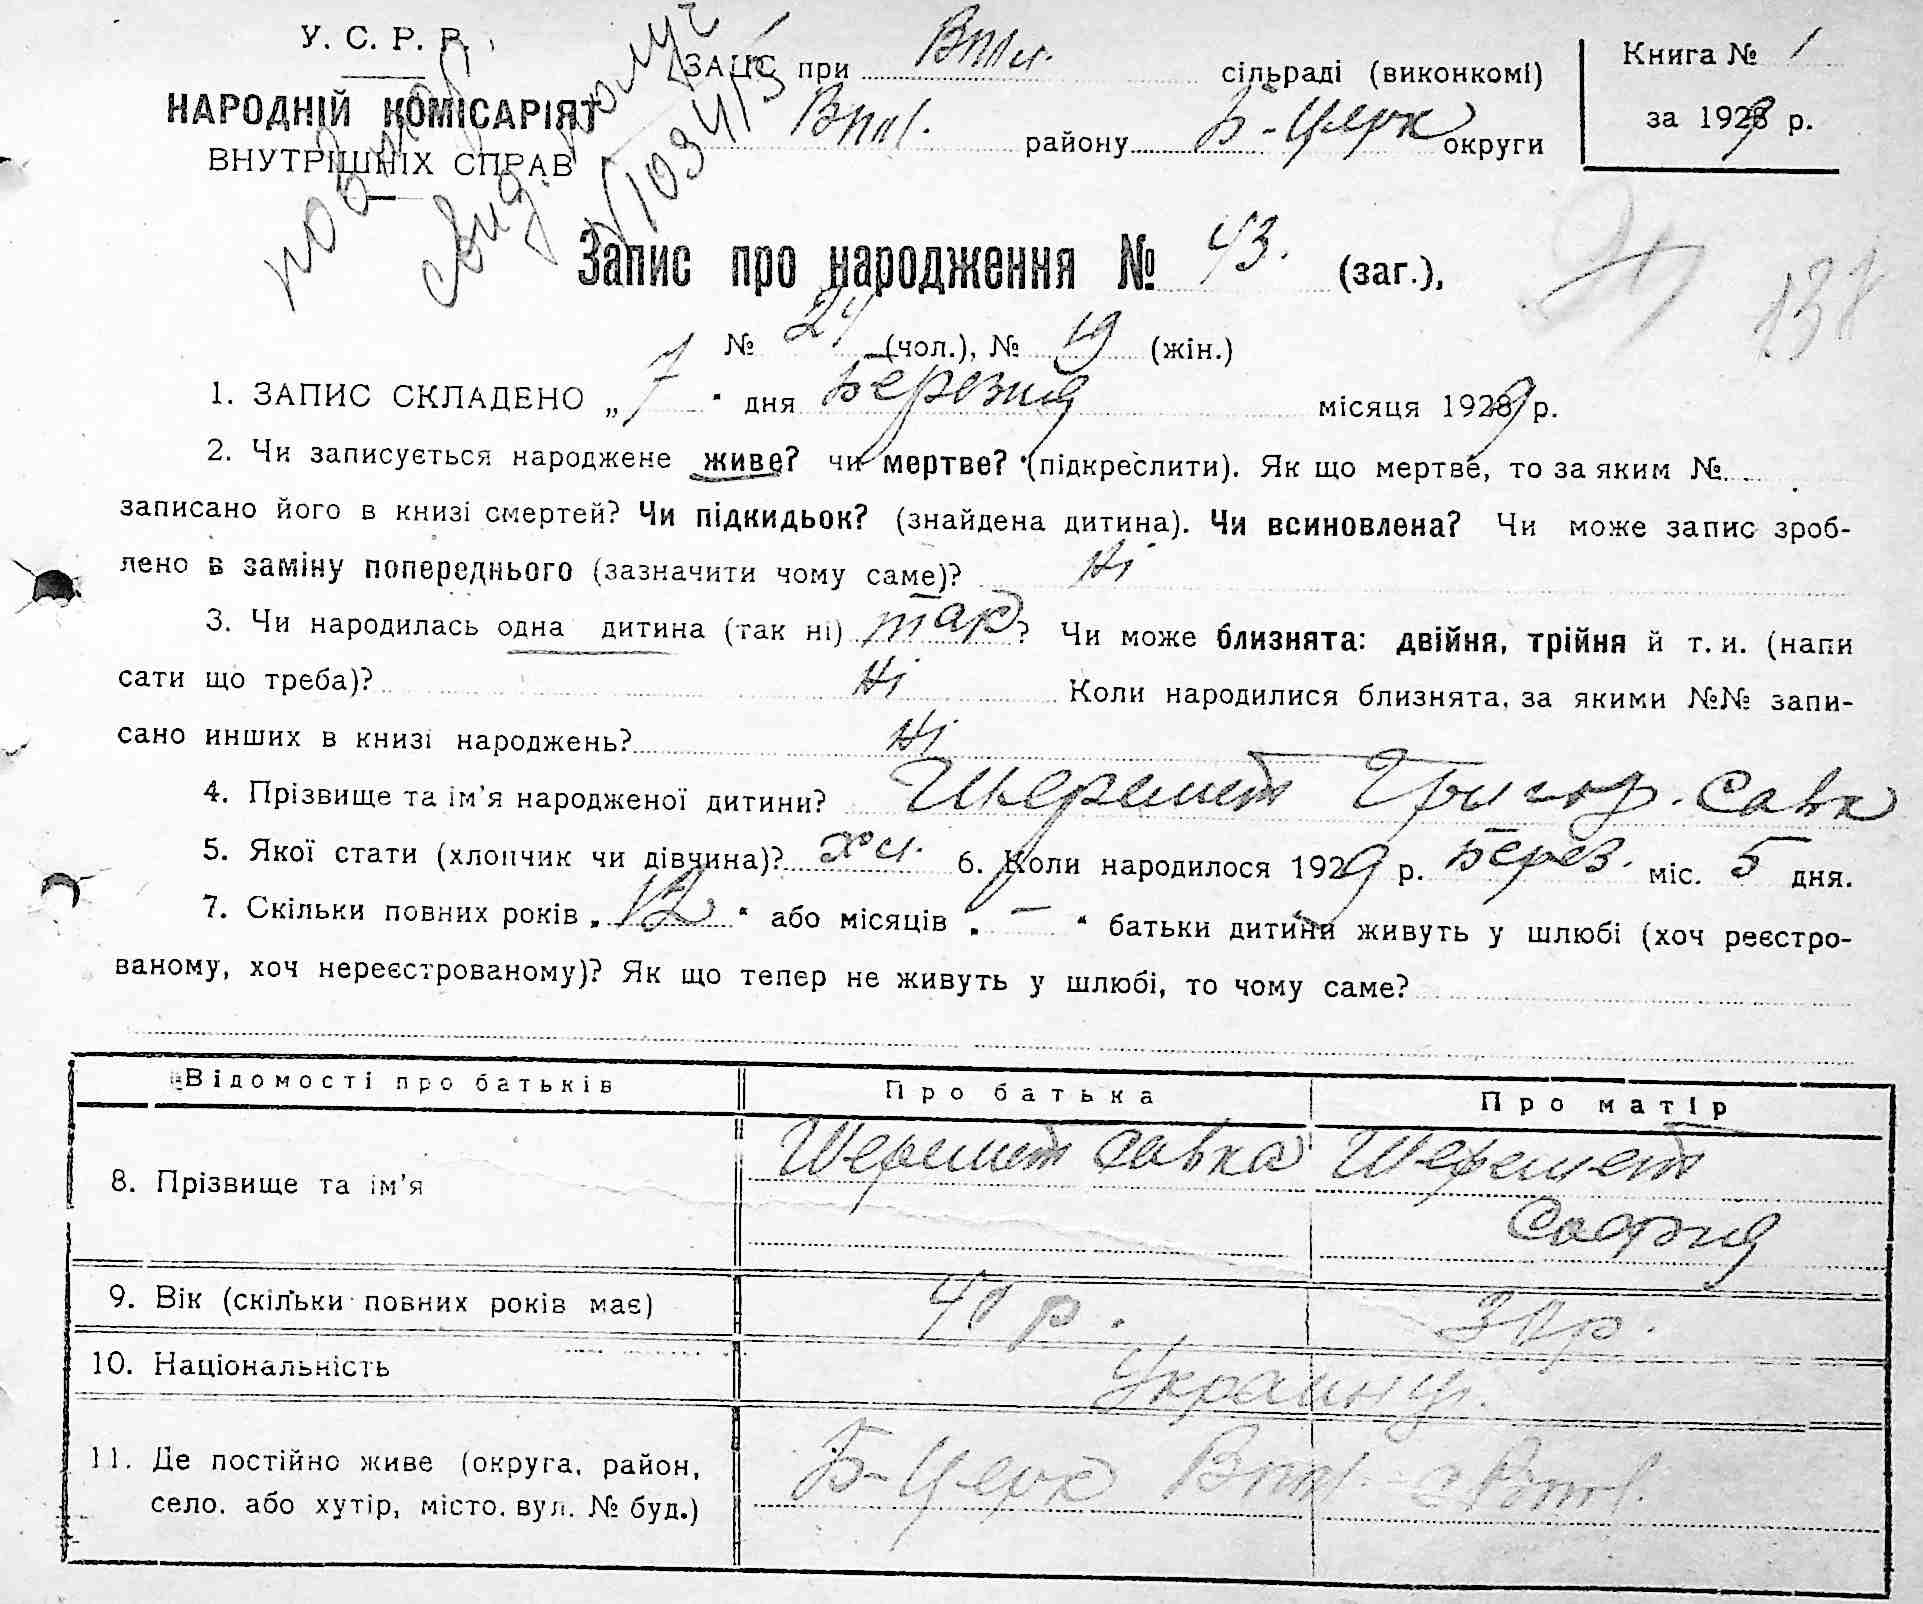 У. С. Р. Р.
НАРОДНІЙ КОМІСАРІЯТ
ВНУТРІШНІХ СПРАВ
ЗАЦС при сільраді (виконкомі)
району Б-Церк округи
Книга № 1
за 1929 р.
повтор
свид. получ
№ 103413
Запис про народження № 43. (заг.),
138
№ 24 (чол.), № 19 (жін.)
1. ЗАПИС СКЛАДЕНО „ 7 " дня Березня місяця 1929 р.
2. Чи записується народжене живе? чи мертве? (підкреслити). Як що мертве, то за яким №
записано його в книзі смертей? Чи підкидьок? (знайдена дитина). Чи всиновлена? Чи може запис зроб-
лено в заміну попереднього (зазначити чому саме)? Ні
3. Чи народилась одна дитина (так ні) так? Чи може близнята: двійня, трійня й т. и. (напи
сати що треба)? Ні Коли народилися близнята, за якими №№ запи-
сано инших в книзі народжень? Ні
4. Прізвище та ім'я народженої дитини? Шеремет Григор. Савк
5. Якої стати (хлопчик чи дівчина)? хл. 6. Коли народилося 1929 р. Берез. міс. 5 дня.
7. Скільки повних років „ 12 " або місяців „ — " батьки дитини живуть у шлюбі (хоч реєстро-
ваному, хоч нереєстрованому)? Як що тепер не живуть у шлюбі, то чому саме?
Відомості про батьків Про батька Про матір
8. Прізвище та ім'я Шеремет Савка Шеремет
София
9. Вік (скільки повних років має) 40 р. 30 р.
10. Національність Украинці.
11. Де постійно живе (округа, район,
село, або хутір, місто, вул. № буд.) Б-Церк